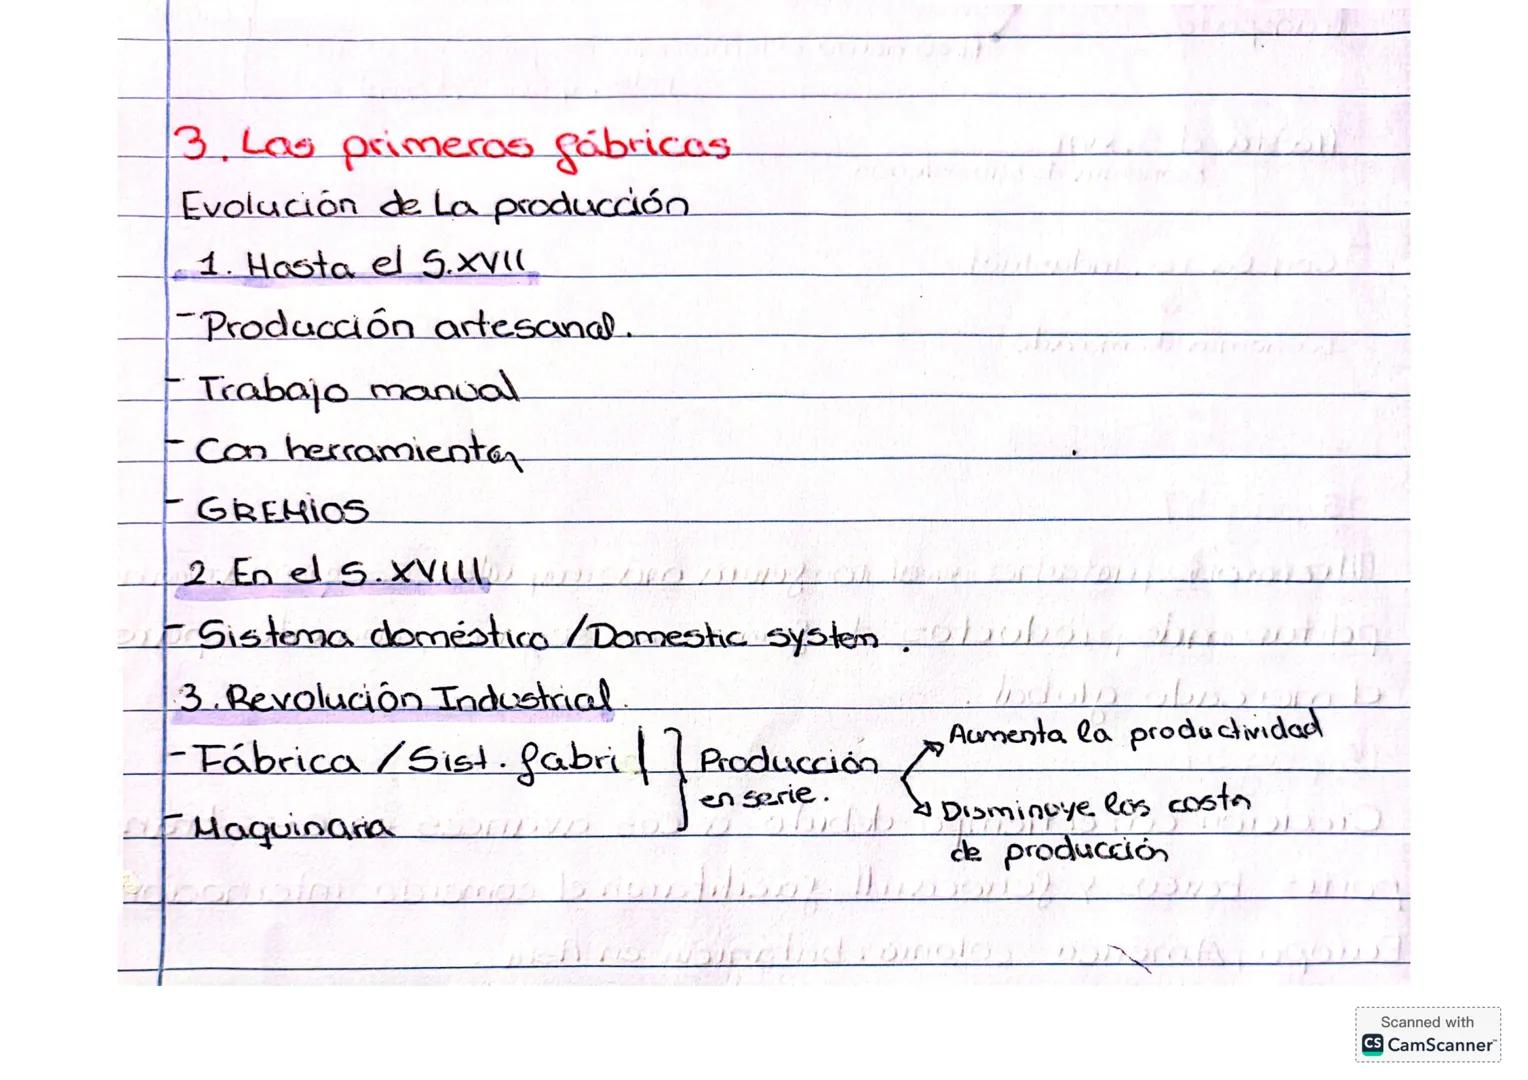 3. Las primeras fábricas
Evolución de la producción
1. Hasta el S.XVII
- Producción artesanal.
- Trabajo manual
- Con herramientas
- GREMIOS
2. En el S.XVIII
- Sistema doméstico / Domestic system.
3. Revolución Industrial.
- Fábrica / Sist. fabril
- Maquinaria
Producción
en serie.
Aumenta la productividad
Disminuye los costes
de producción
Scanned with
CS CamScanner